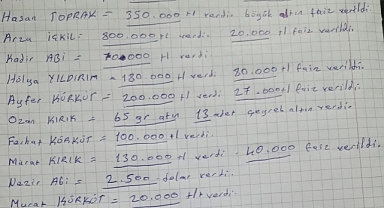 Hasan TOPRAK = 350.000 tl verdi. büyük altın faiz verildi
Arzu İÇKİL = 800.000 tl verdi. 20.000 tl faiz verildi.
Kadir ABİ = 000 tl verdi.
Hülya YILDIRIM = 180.000 tl verdi. 80.000 tl faiz verildi.
Ayfer KÖRKÜT = 200.000 tl verdi. 27.000 tl faiz verildi.
Ozan KIRIK = 65 gr altın 13 adet çeyrek altın verdi.
Ferhat KÖRKÜT = 100.000 tl verdi.
Murat KIRIK = 130.000 tl verdi. 40.000 faiz verildi.
Nazir Abi = 2.500 dolar verdi.
Murat KÖRKÜT = 20.000 tl verdi.